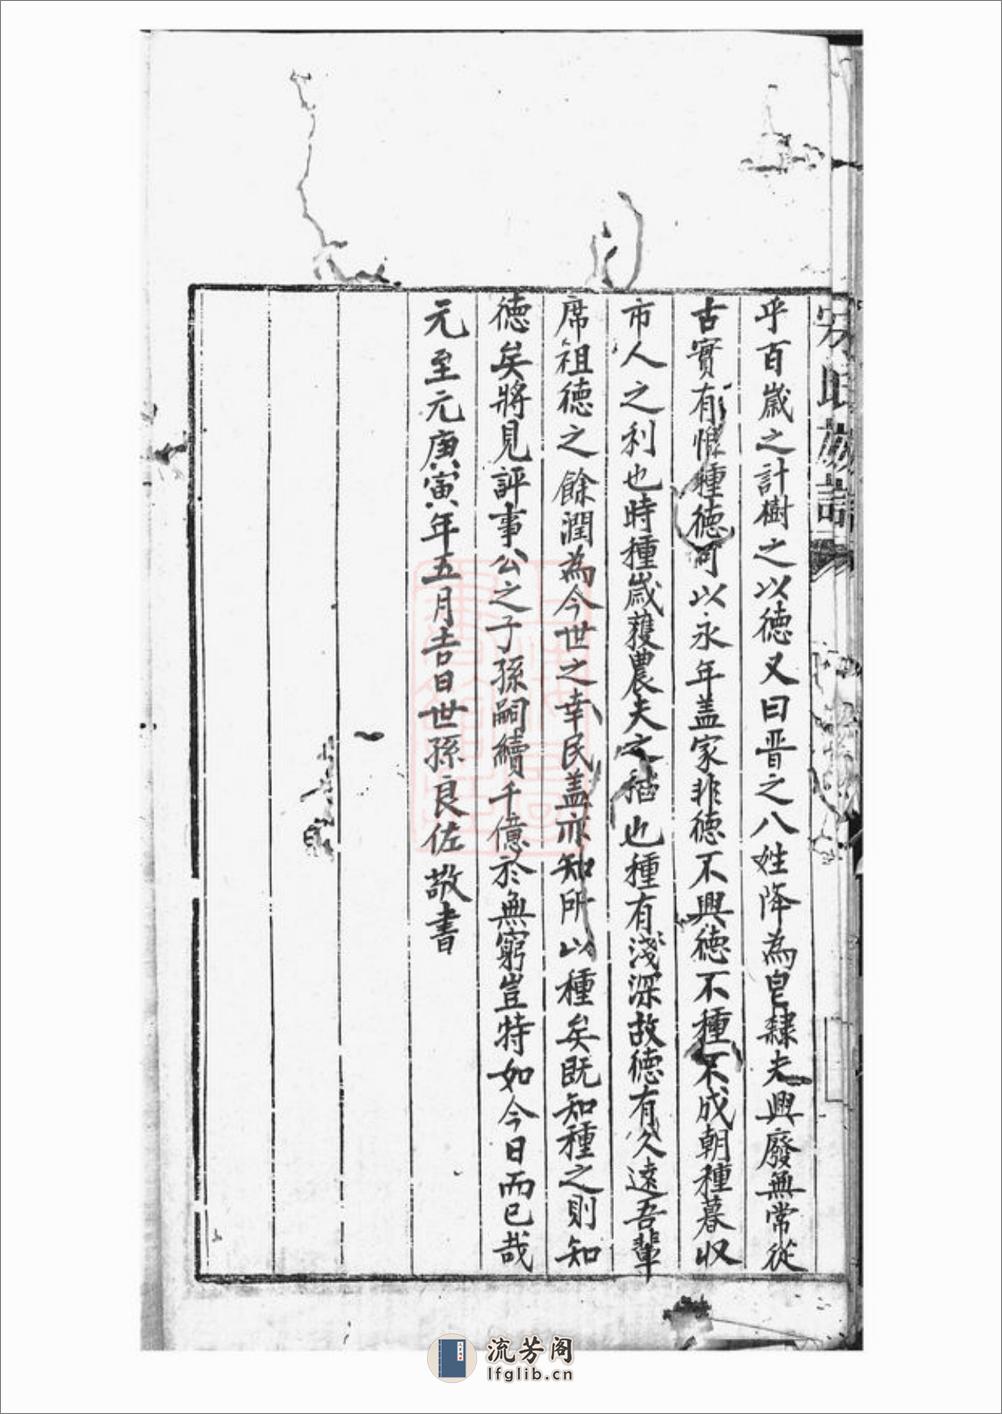 乎百歲之計樹之以德又曰晋之八姓降為皂隸夫興廢無常從
古實有惟種德可以永年盖家非德不興德不種不成朝種暮収
市人之利也時種歲穫農夫之穡也種有淺深故德有久遠吾輩
席祖德之餘潤為今世之幸民盖亦知所以種矣既知種之則知
德矣將見評事公之子孫嗣續千億於無窮豈特如今日而已哉
元至元庚寅年五月吉日世孫良佐敬書
流芳阁
lfglib.cn